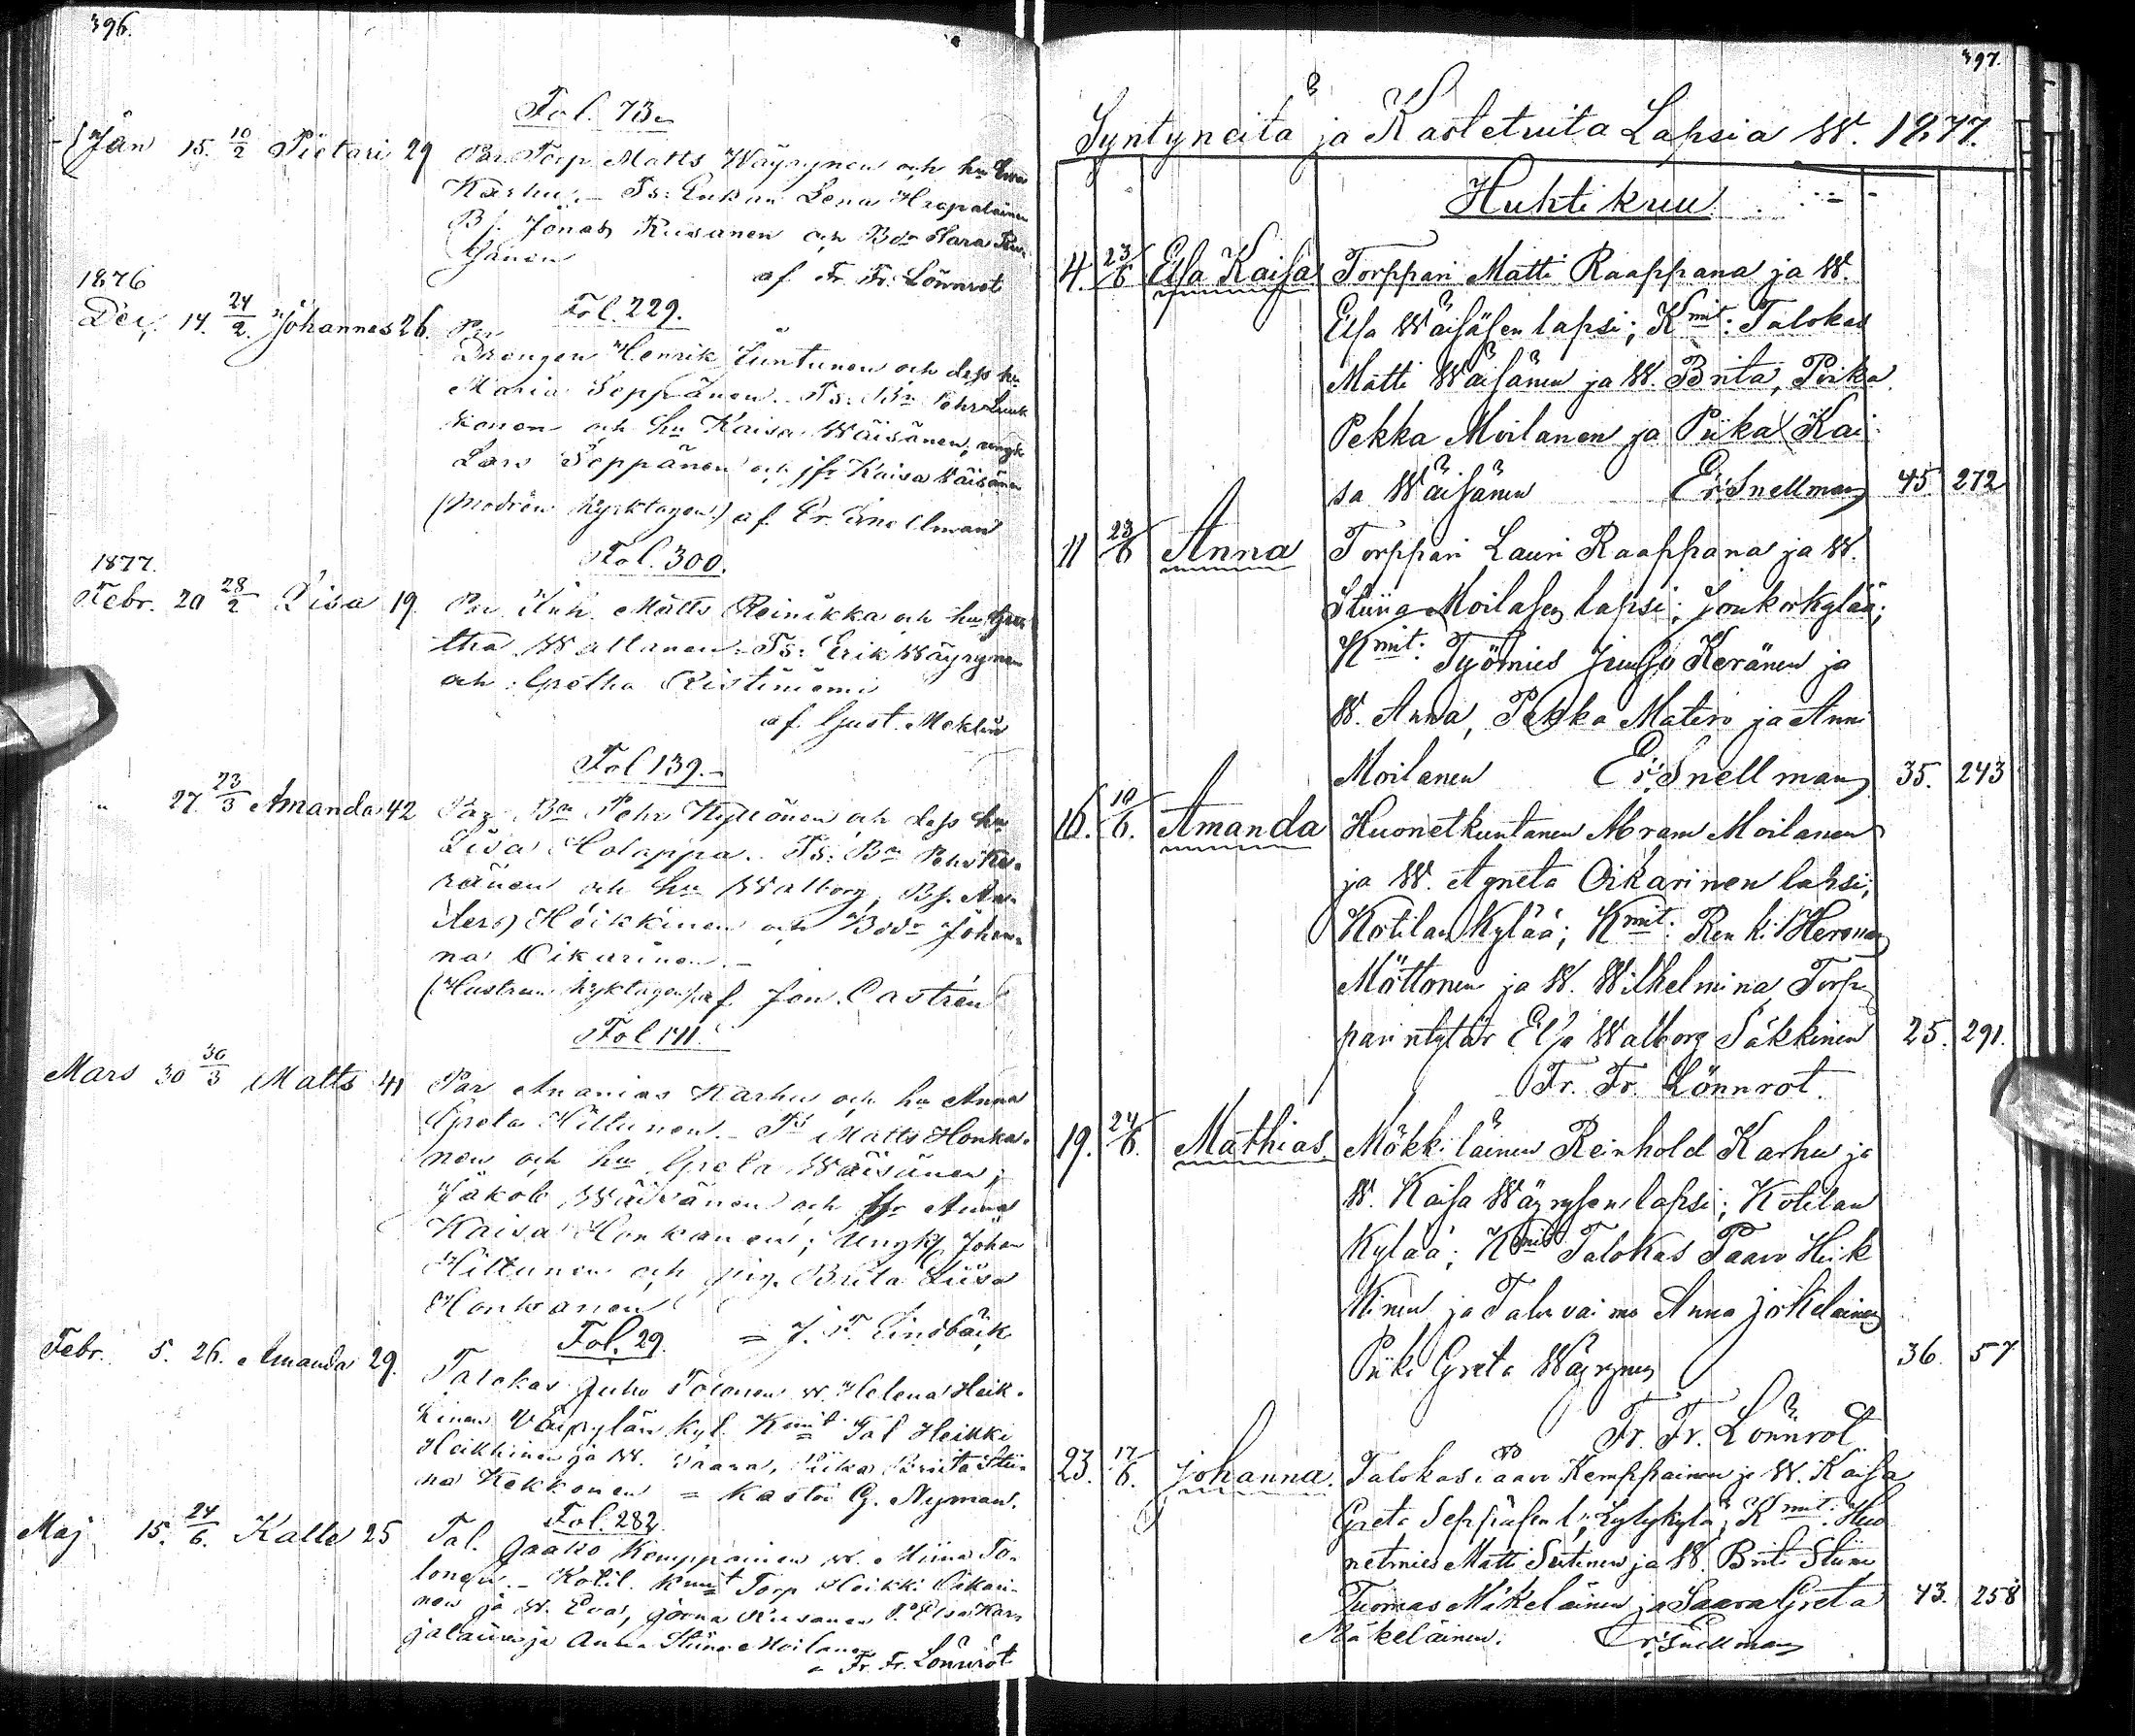 396.
Fol. 73.
Jan 15. 10/2 Pietari 29 Par Torp Matts Wäyrynen och hu Ewa
Karhu. – Ts: Enkan Lena Haapalainen
Bf. Jonas Kusanen och Bdr Sara
af Fr. Fr. Lönnrot
1876
Fol. 229.
Dec. 14. 24/2. Johannes 26. Par
Drengen Henrik Juntunen och dess hu
Maria Seppänen. Ts: Bn Pehr Luuk
konen och hu Kaisa Wäisänen, yngk
Lars Seppänen och jfr Kaisa Wäisänen
(modren kyrktagen) af Er. Snellman
Fol. 300.
1877.
Febr. 20 28/2 Lisa 19 Par Inh. Matts Reinikka och hu Gre
tha Wallanen. Ts: Erik Wäyrynen
och Gretha Ristiniemi
af Gust. Meklin
Fol 139. –
" 27. 23/3 Amanda 42 Par Bn Pehr Kyllönen och dess hu
Lisa Holappa. Ts: Bn Pehr Ke-
ränen och hu Walborg, Bf. An-
ders Heikkinen och Bdr Johan-
na Oikarinen. –
(Hustrun kyktagen) af Jon. Castrén
Fol 141.
Mars 30 30/3 Matts 41 Par Ananias Karhu och hu Anna
Greta Hiltunen. – Ts Matts Honka-
nen och hu Greta Wäisänen;
Jakob Wäisänen och Jfr Anna
Kaisa Honkanen; Yngk. Johan
Hiltunen och pig. Brita Liisa
Honkanen
= J. F. Lindbäck
Fol. 29.
Febr. 5. 26. Amanda 29. Talokas Juho Tolonen w. Helena Heik-
kinen Väyrylän kyl. Kmit Tal Heikki
Heikkinen ja W. Saara, Piika Briita Stii-
na Kekkonen = Kastoi G. Nyman.
Fol. 282.
Maj 15. 24/6. Kalle 25 Tal. Jaako Kemppainen w. Miina To-
lonen. – Kotil. Kmit Torp Heikki Oikari-
nen ja W. Eva, Jonna Kusanen P. Elsa Kar-
jalainen ja Anna Stiina Moilanen
= Fr. Fr. Lönnrot
397.
Syntyneitä ja Kastetuita Lapsia W. 1877.
Huhtikuu
4. 23/6 Elsa Kaisa Torppari Matti Raappana ja W.
Elsa Wäisäsen lapsi; Kmit: Talokas
Matti Wäisänen ja W. Brita, Poika
Pekka Moilanen ja Piika Kai-
sa Wäisänen Er: Snellman 45. 272
11 23/6 Anna Torppari Lauri Raappana ja W.
Stiina Moilasen lapsi; Joukokylää;
Kmit: Työmies Juuso Keränen ja
W. Anna, Pekka Matero ja Anni
Moilanen Er: Snellman 35. 243
16. 10/6. Amanda Huonetkuntanen Abram Moilanen
ja W. Agneta Oikarinen lapsi;
Kotilan Kylää; Kmit: Renki Herman
Möttönen ja W. Wilhelmina, Torp-
parintytär Elsa Walborg Säkkinen 25. 291.
Fr. Fr. Lönnrot.
19. 24/6. Mathias. Mökkiläinen Reinhold Karhu ja
W. Kaisa Wäyrysen lapsi; Kotilan
Kylää; Kmit Talokas Paavo Heik
kinen ja Talon vaimo Anna Jokelainen
Piika Greta Wäyrynen 36. 57
Fr. Fr. Lönnrot
23. 17/6. Johanna. Talokas Paavo Kemppainen ja W. Kaisa
Greta Seppäsen l; Lylykylä; Kmit: Huo
netmies Matti Sutinen ja W. Brita Stiina
Tuomas Mikeläinen ja Saara Greta 43. 258
Mäkeläinen. Er: Snellman